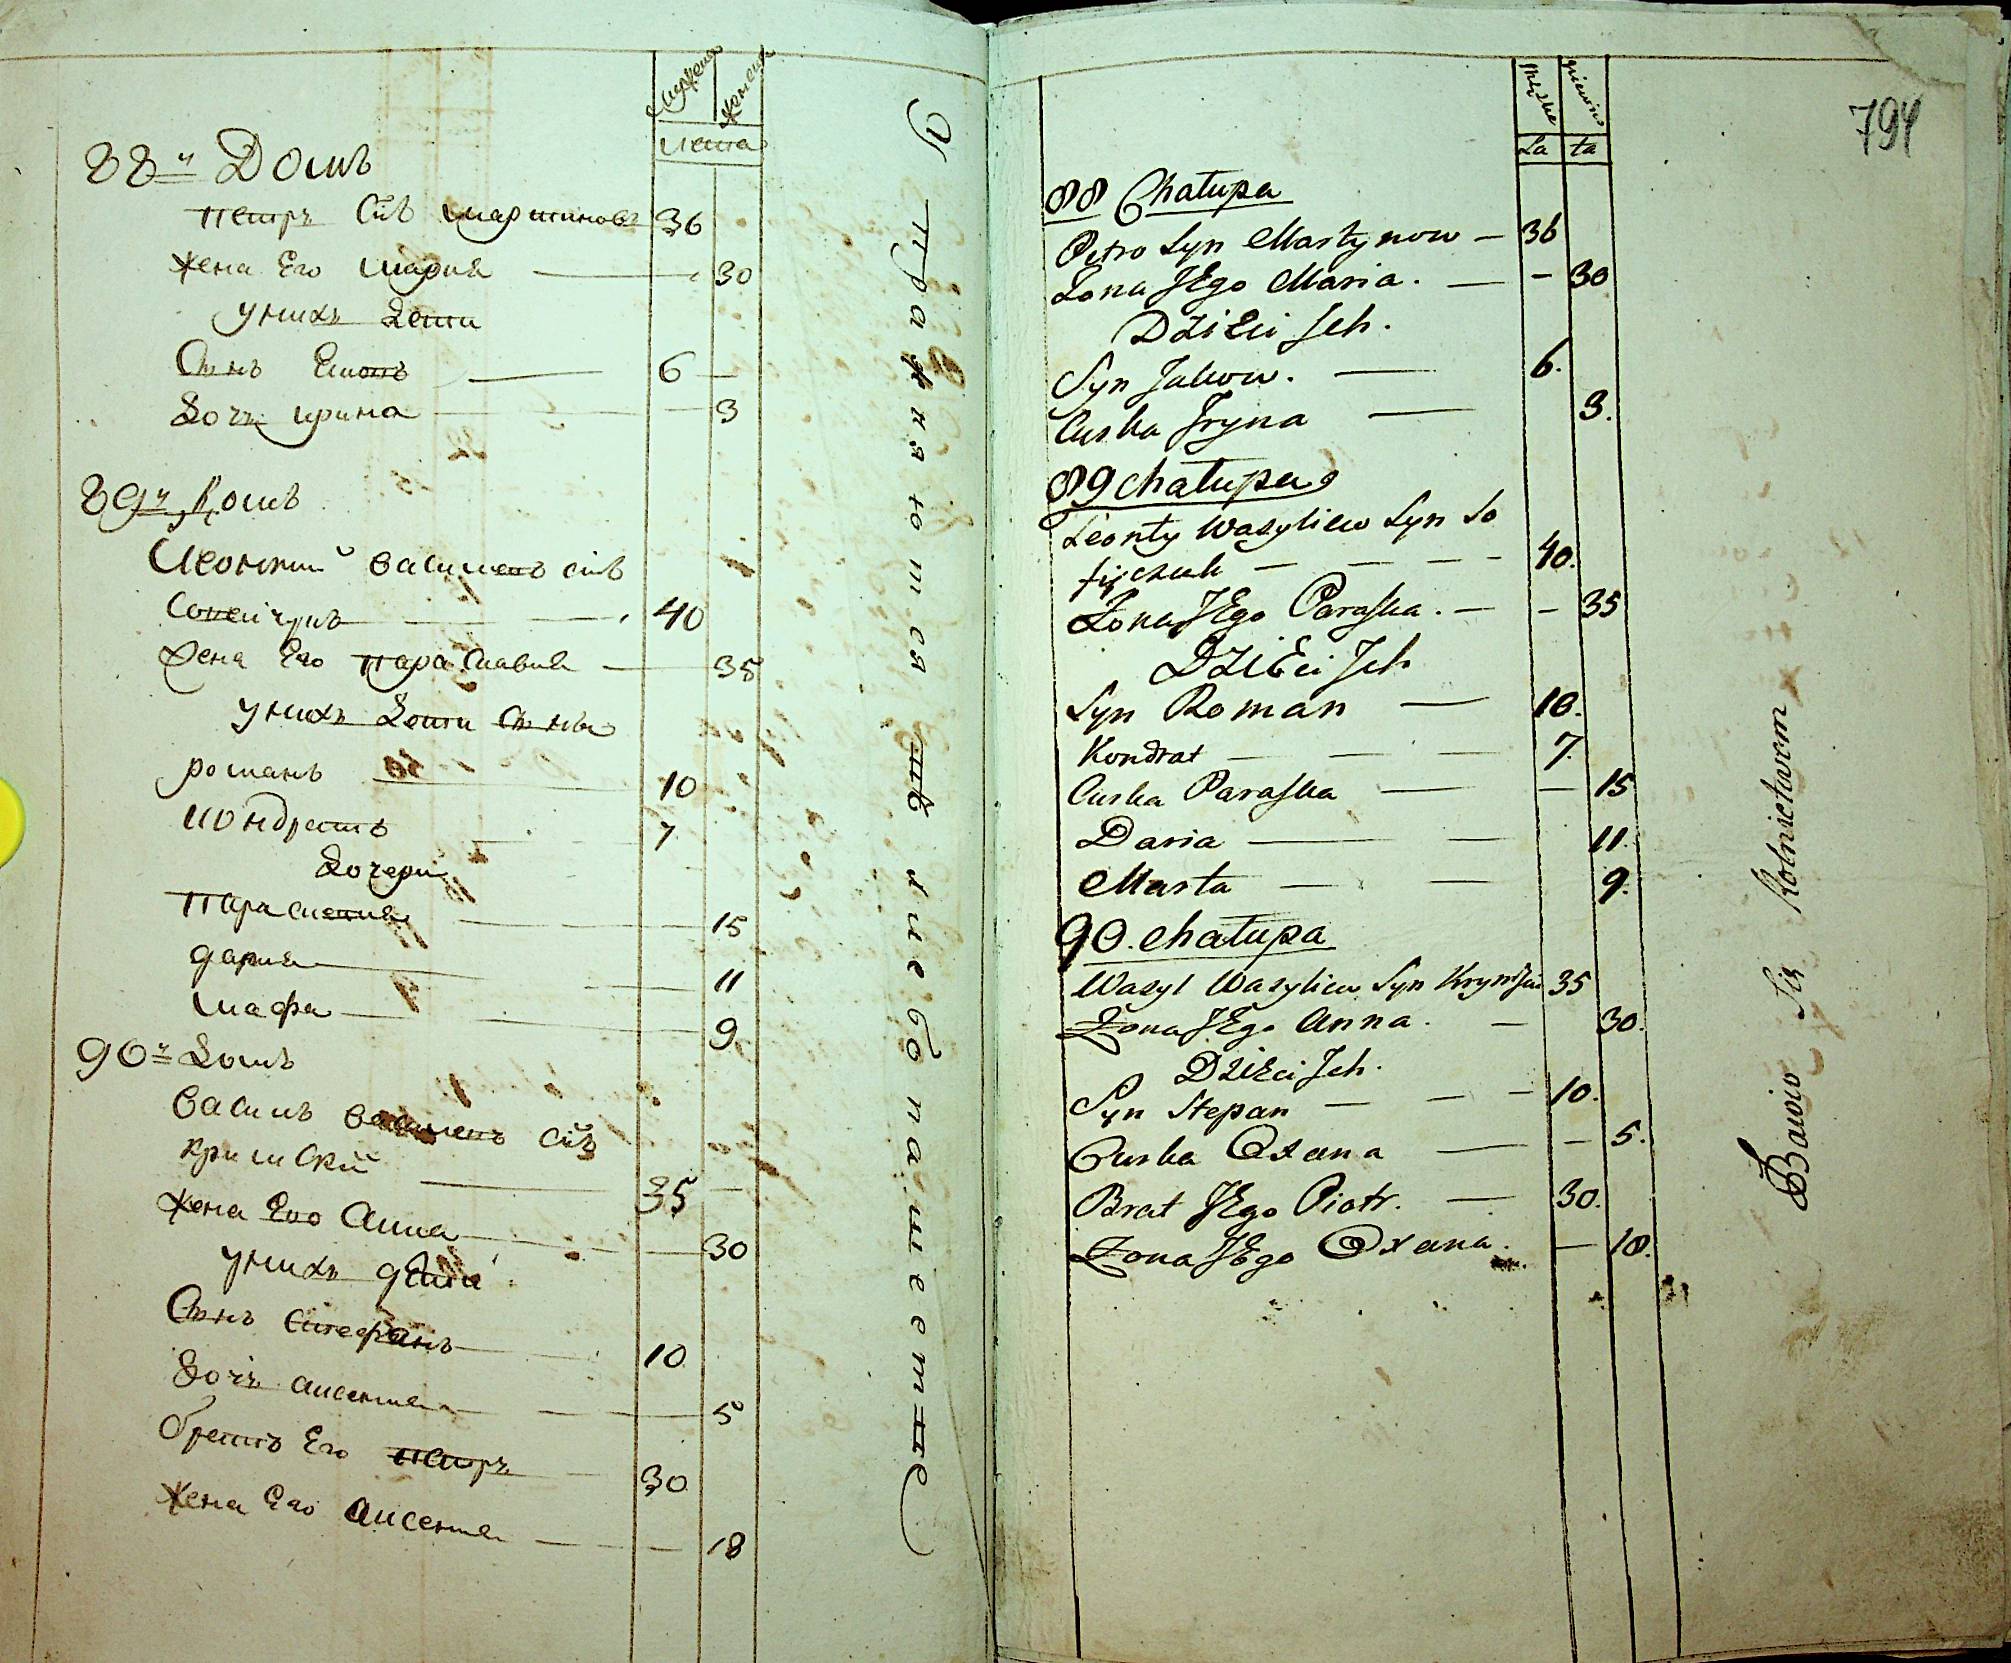 Мужеска
Женска
Лета
88й Домъ
Петръ Снъ Мартиновъ 36
Жена Его Мария 30
У нихъ Дети
Сынъ 6
Дочь ирина 3
89й Домъ
Леонтий Василевъ снъ
40
Жена Его Параскавия 35
У нихъ Дети Сыны
романъ 10
кондратъ 7
Дочери
Параскевия 15
дария 11
Марфа 9
90й Домъ
Василь Василевъ снъ
Кримский 35
Жена Его Анна 30
У нихъ дети
Сынъ Стефанъ 10
Дочь аксения 5
братъ Его Петръ 30
Жена Его Аксения 18
Упражняются
хлебопашест
794
Męzkie
La ta
88 Chałupa
Petro Syn Martynow - 36
Żona JEgo Maria. - 30
DziEci Jch.
Syn Jakow. 6.
Curka Jryna 3.
89 chałupa
Leonty Wasyliew Syn So
fijczuk 40.
Żona JEgo Paraska. - 35
DziEci Jch
Syn Roman 10.
Kondrat 7.
Curka Paraska 15
Daria 11.
Marta 9.
90. chałupa
Wasyl Wasyliew Syn 35
Żona JEgo Anna. 30.
DziEci Jch.
Syn Stepan 10.
Curka Oxana 5.
Brat JEgo Piotr. 30.
Żona JEgo Oxana. 18.
Bawio Się Rolnictwem